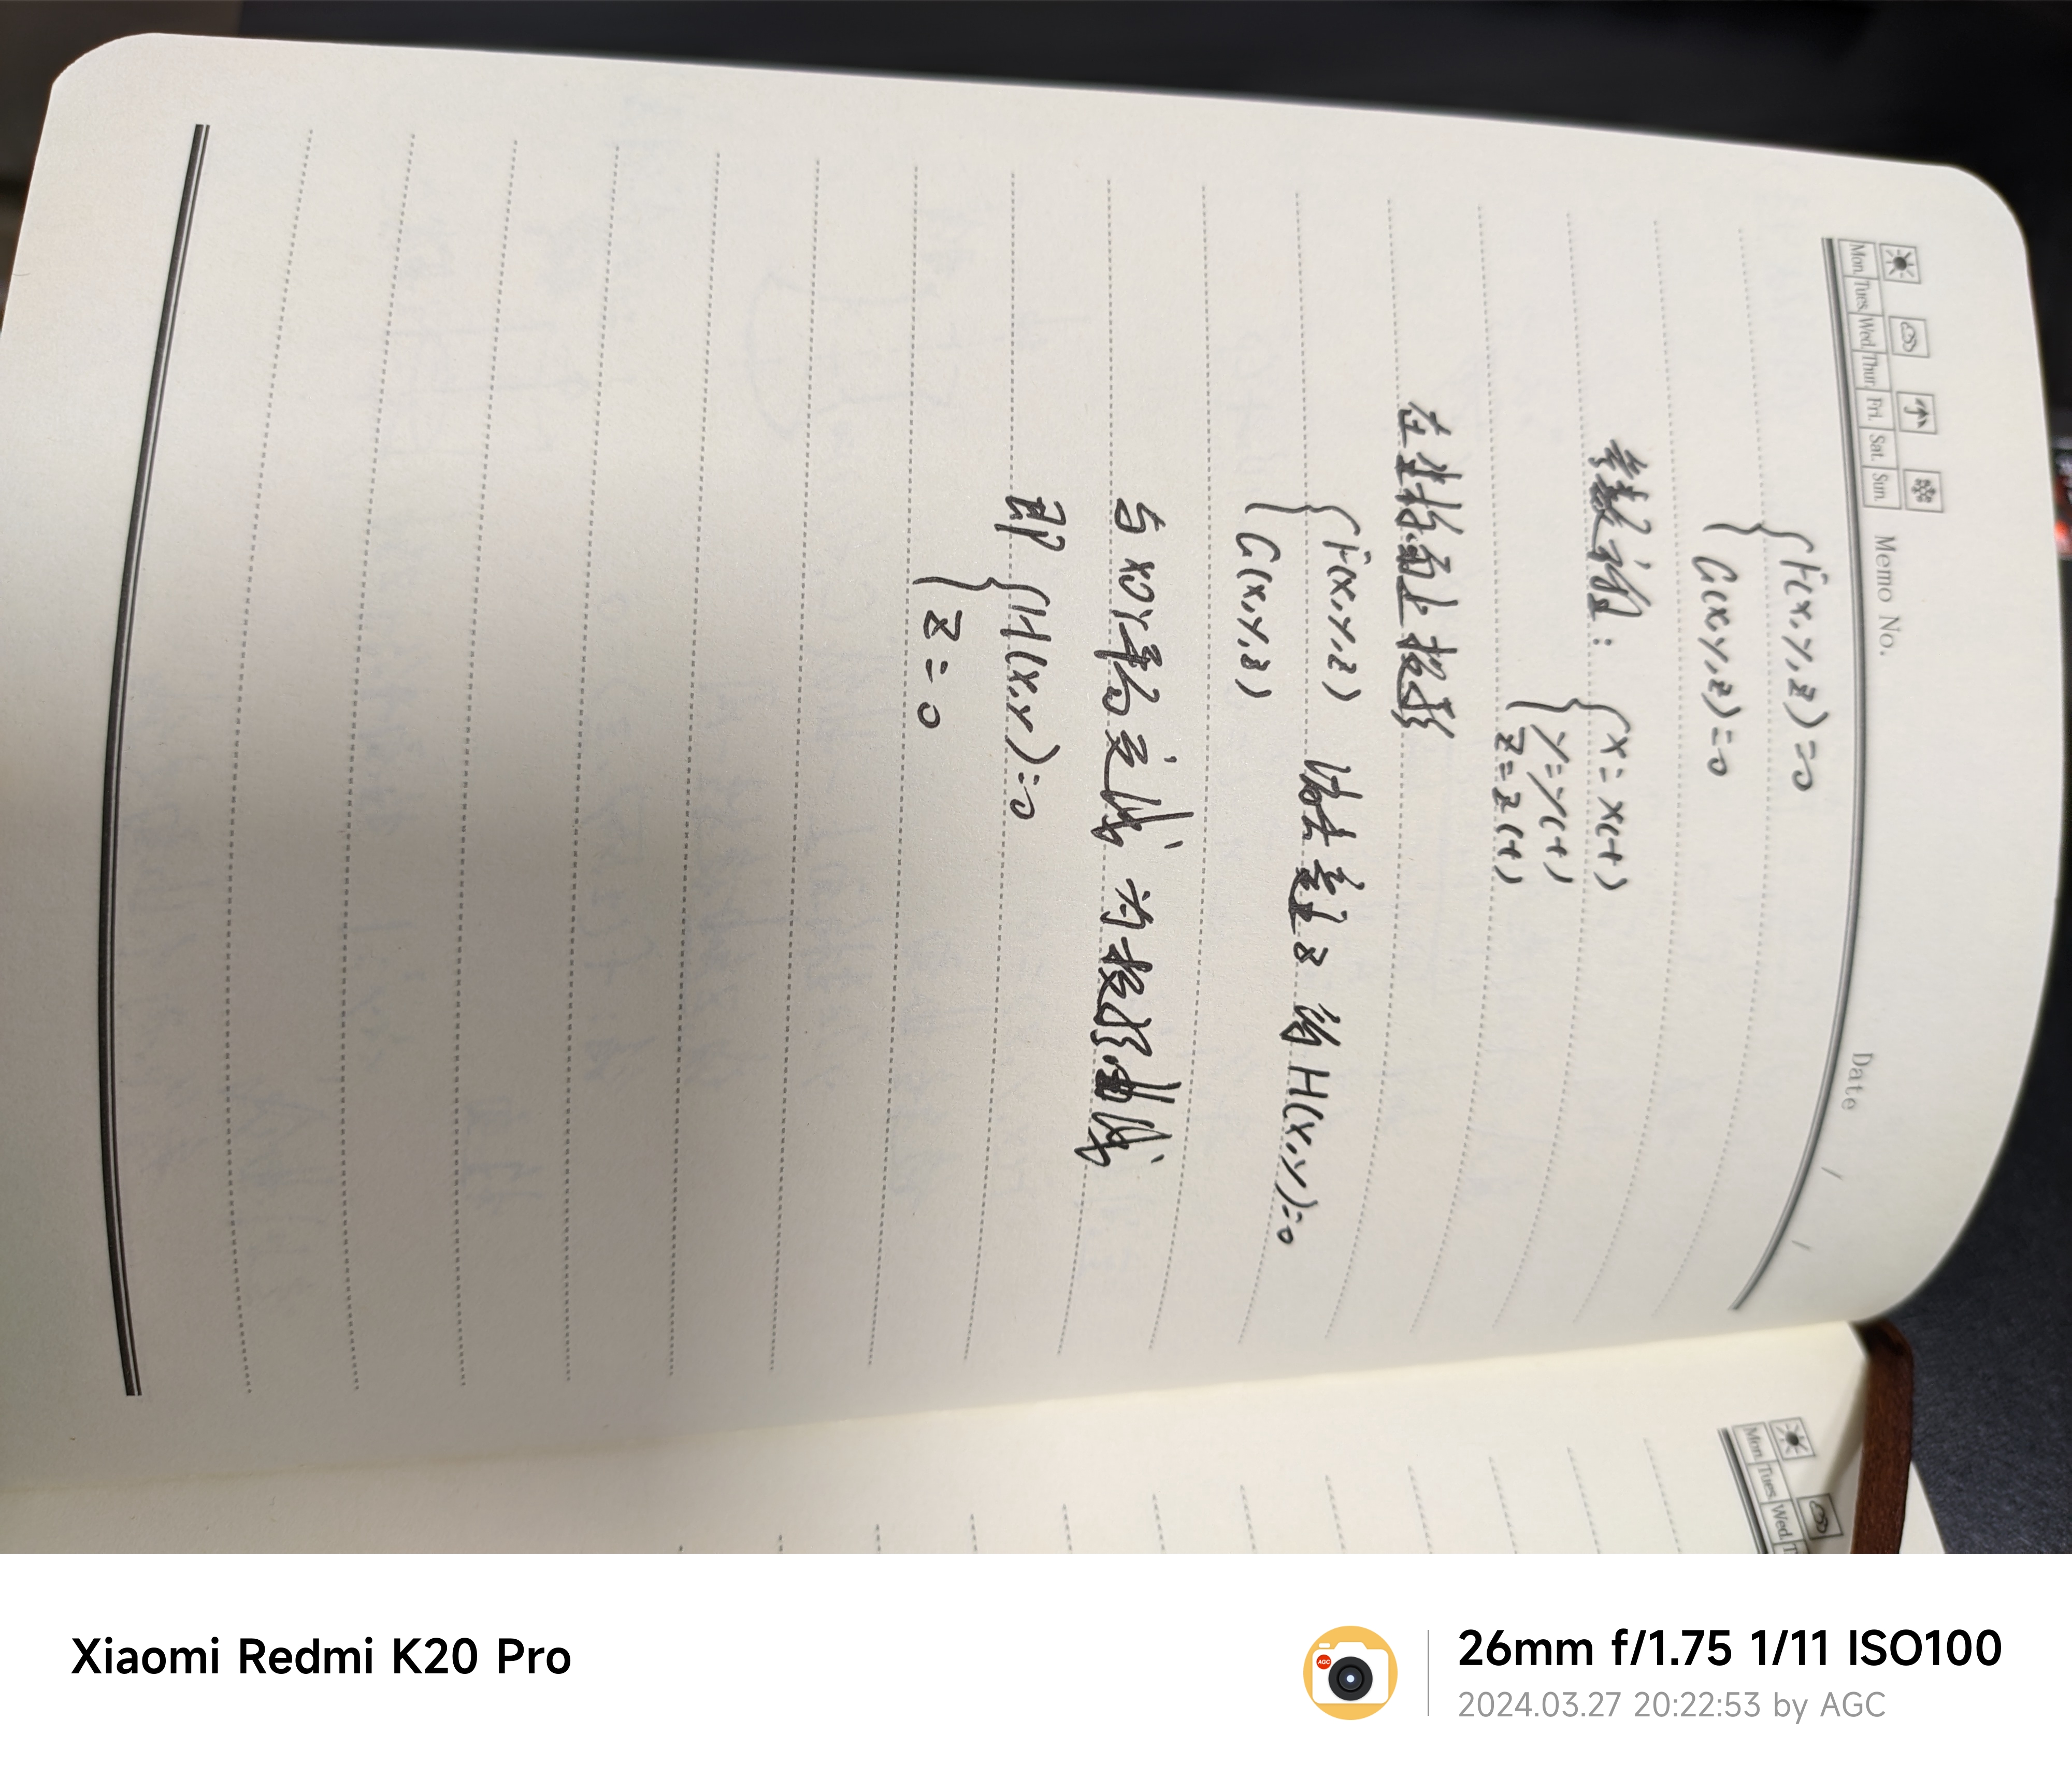 Memo No.
Date / /
Mon. Tues. Wed. Thur. Fri. Sat. Sun.
{F(x,y,z)=0
G(x,y,z)=0
参数方程: {x=x(t)
y=y(t)
z=z(t)
在坐标面上投影
{F(x,y,z) 消去变量z 得 H(x,y)=0
G(x,y,z)
与xoy平面交线 为投影曲线
即 {H(x,y)=0
z=0
Mon. Tues. Wed.
Xiaomi Redmi K20 Pro
AGC
26mm f/1.75 1/11 ISO100
2024.03.27 20:22:53 by AGC